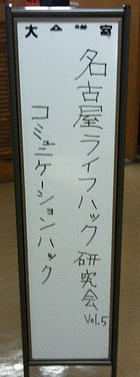 大会議室
名古屋ライフハック研究会 Vol.5
コミュニケーションハック